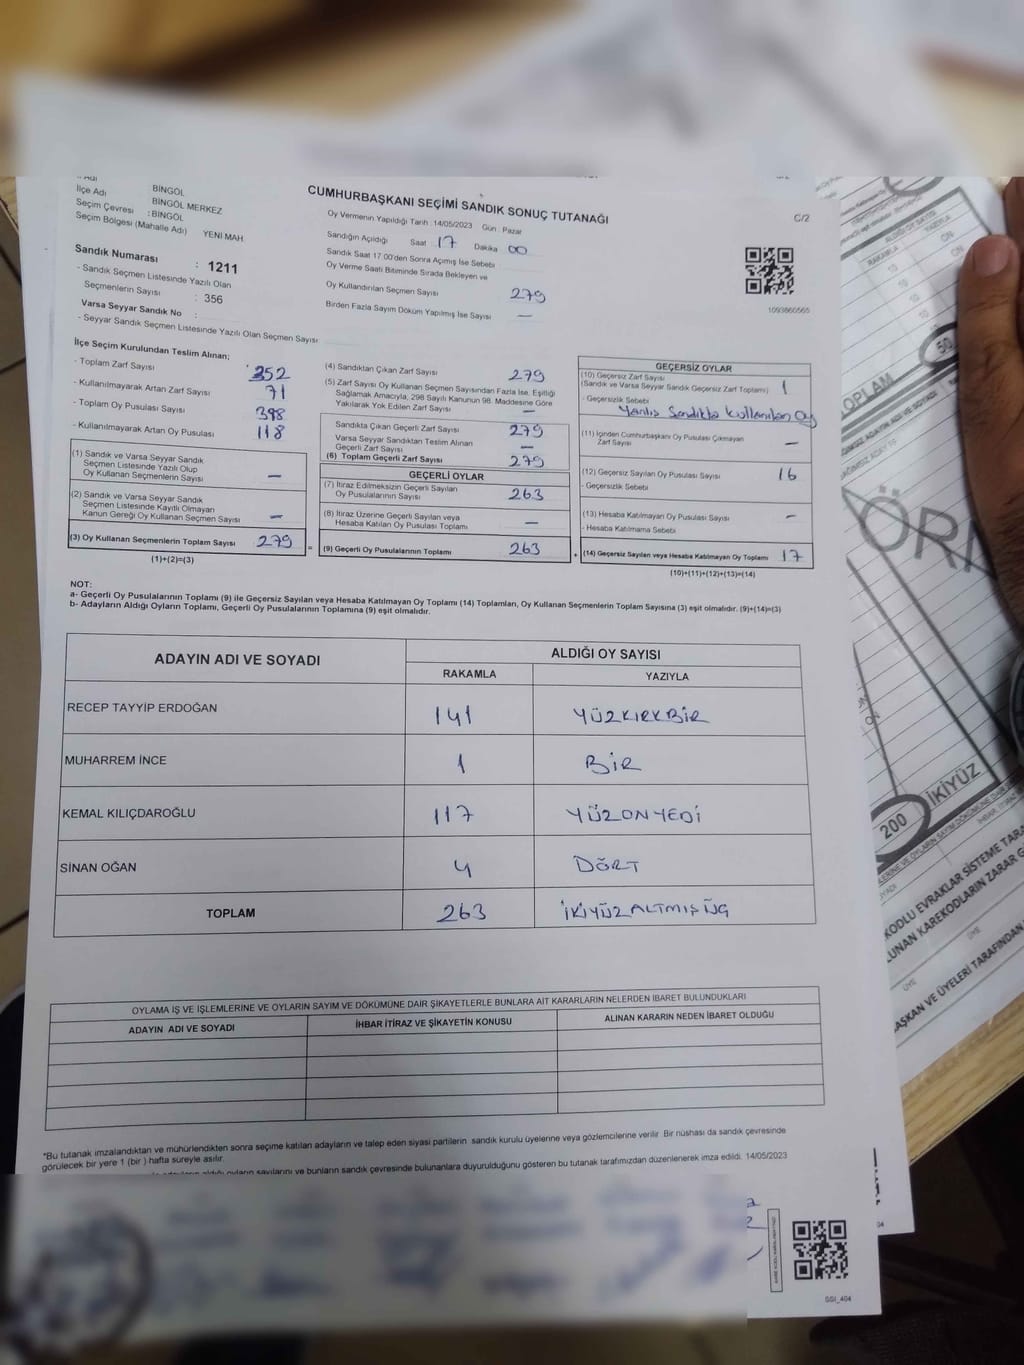 İlçe Adı BİNGÖL
Seçim Çevresi BİNGÖL MERKEZ
Seçim Bölgesi (Mahalle Adı) : BİNGÖL
YENİ MAH
Sandık Numarası : 1211
- Sandık Seçmen Listesinde Yazılı Olan
Seçmenlerin Sayısı : 356
Varsa Seyyar Sandık No :
- Seyyar Sandık Seçmen Listesinde Yazılı Olan Seçmen Sayısı
CUMHURBAŞKANI SEÇİMİ SANDIK SONUÇ TUTANAĞI
C/2
Oy Vermenin Yapıldığı Tarih : 14/05/2023 Gün : Pazar
Sandığın Açıldığı Saat 17 Dakika 00
Sandık Saat 17.00'den Sonra Açımış İse Sebebi
Oy Verme Saati Bitiminde Sırada Bekleyen ve
Oy Kullandırılan Seçmen Sayısı 279
Birden Fazla Sayım Döküm Yapılmış İse Sayısı —
1093860565
İlçe Seçim Kurulundan Teslim Alınan;
- Toplam Zarf Sayısı 352
- Kullanılmayarak Artan Zarf Sayısı 71
- Toplam Oy Pusulası Sayısı 398
- Kullanılmayarak Artan Oy Pusulası 118
(1) Sandık ve Varsa Seyyar Sandık
Seçmen Listesinde Yazılı Olup
Oy Kullanan Seçmenlerin Sayısı —
(2) Sandık ve Varsa Seyyar Sandık
Seçmen Listesinde Kayıtlı Olmayan
Kanun Gereği Oy Kullanan Seçmen Sayısı —
(3) Oy Kullanan Seçmenlerin Toplam Sayısı 279 =
(1)+(2)=(3)
(4) Sandıktan Çıkan Zarf Sayısı 279
(5) Zarf Sayısı Oy Kullanan Seçmen Sayısından Fazla İse, Eşitliği
Sağlamak Amacıyla, 298 Sayılı Kanunun 98. Maddesine Göre
Yakılarak Yok Edilen Zarf Sayısı —
Sandıkta Çıkan Geçerli Zarf Sayısı 279
Varsa Seyyar Sandıktan Teslim Alınan
Geçerli Zarf Sayısı —
(6) Toplam Geçerli Zarf Sayısı 279
GEÇERLİ OYLAR
(7) İtiraz Edilmeksizin Geçerli Sayılan
Oy Pusulalarının Sayısı 263
(8) İtiraz Üzerine Geçerli Sayılan veya
Hesaba Katılan Oy Pusulası Toplamı —
(9) Geçerli Oy Pusulalarının Toplamı 263 +
GEÇERSİZ OYLAR
(10) Geçersiz Zarf Sayısı
(Sandık ve Varsa Seyyar Sandık Geçersiz Zarf Toplamı) 1
- Geçersizlik Sebebi
Yanlış Sandıkta Kullanılan Oy
(11) İçinden Cumhurbaşkanı Oy Pusulası Çıkmayan
Zarf Sayısı —
(12) Geçersiz Sayılan Oy Pusulası Sayısı 16
- Geçersizlik Sebebi
(13) Hesaba Katılmayan Oy Pusulası Sayısı —
- Hesaba Katılmama Sebebi
(14) Geçersiz Sayılan veya Hesaba Katılmayan Oy Toplamı 17
(10)+(11)+(12)+(13)=(14)
NOT:
a- Geçerli Oy Pusulalarının Toplamı (9) ile Geçersiz Sayılan veya Hesaba Katılmayan Oy Toplamı (14) Toplamları, Oy Kullanan Seçmenlerin Toplam Sayısına (3) eşit olmalıdır. (9)+(14)=(3)
b- Adayların Aldığı Oyların Toplamı, Geçerli Oy Pusulalarının Toplamına (9) eşit olmalıdır.
ADAYIN ADI VE SOYADI
ALDIĞI OY SAYISI
RAKAMLA YAZIYLA
RECEP TAYYİP ERDOĞAN 141 YÜZKIRKBİR
MUHARREM İNCE 1 BİR
KEMAL KILIÇDAROĞLU 117 YÜZONYEDİ
SİNAN OĞAN 4 DÖRT
TOPLAM 263 İKİYÜZALTMIŞÜÇ
OYLAMA İŞ VE İŞLEMLERİNE VE OYLARIN SAYIM VE DÖKÜMÜNE DAİR ŞİKAYETLERLE BUNLARA AİT KARARLARIN NELERDEN İBARET BULUNDUKLARI
ADAYIN ADI VE SOYADI İHBAR İTİRAZ VE ŞİKAYETİN KONUSU ALINAN KARARIN NEDEN İBARET OLDUĞU
*Bu tutanak imzalandıktan ve mühürlendikten sonra seçime katılan adayların ve talep eden siyasi partilerin sandık kurulu üyelerine veya gözlemcilerine verilir. Bir nüshası da sandık çevresinde
görülecek bir yere 1 (bir) hafta süreyle asılır.
aldığı oyların sayılarını ve bunların sandık çevresinde bulunanlara duyurulduğunu gösteren bu tutanak tarafımızdan düzenlenerek imza edildi. 14/05/2023
GSI_404
ALDIĞI OY SAYISI
RAKAMLA YAZIYLA
10 ON
10 ON
10
10
50
TOPLAM
ÖRN
200 İKİYÜZ
KODLU EVRAKLAR SİSTEME TARA
LUNAN KAREKODLARIN ZARAR G
ÜYE
ÜYE
AŞKAN VE ÜYELERİ TARAFINDAN